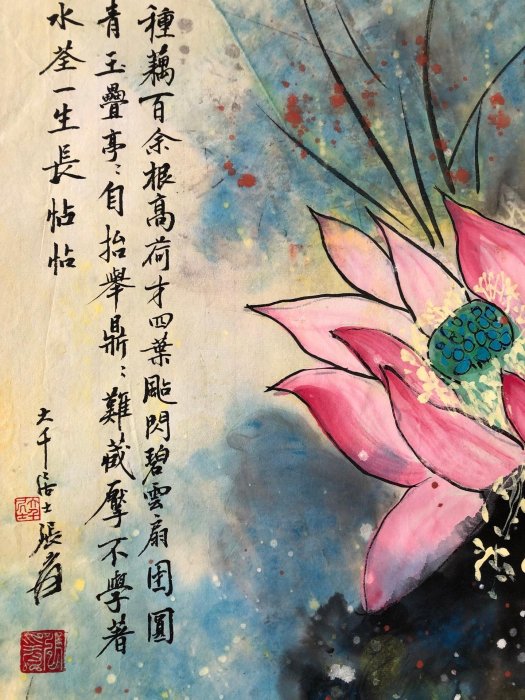 種藕百余根高荷才四葉颭閃碧雲扇团圓
青玉疊亭：自抬舉鼎：難藏擪不學著
水荃一生長帖帖
大千居士張爰